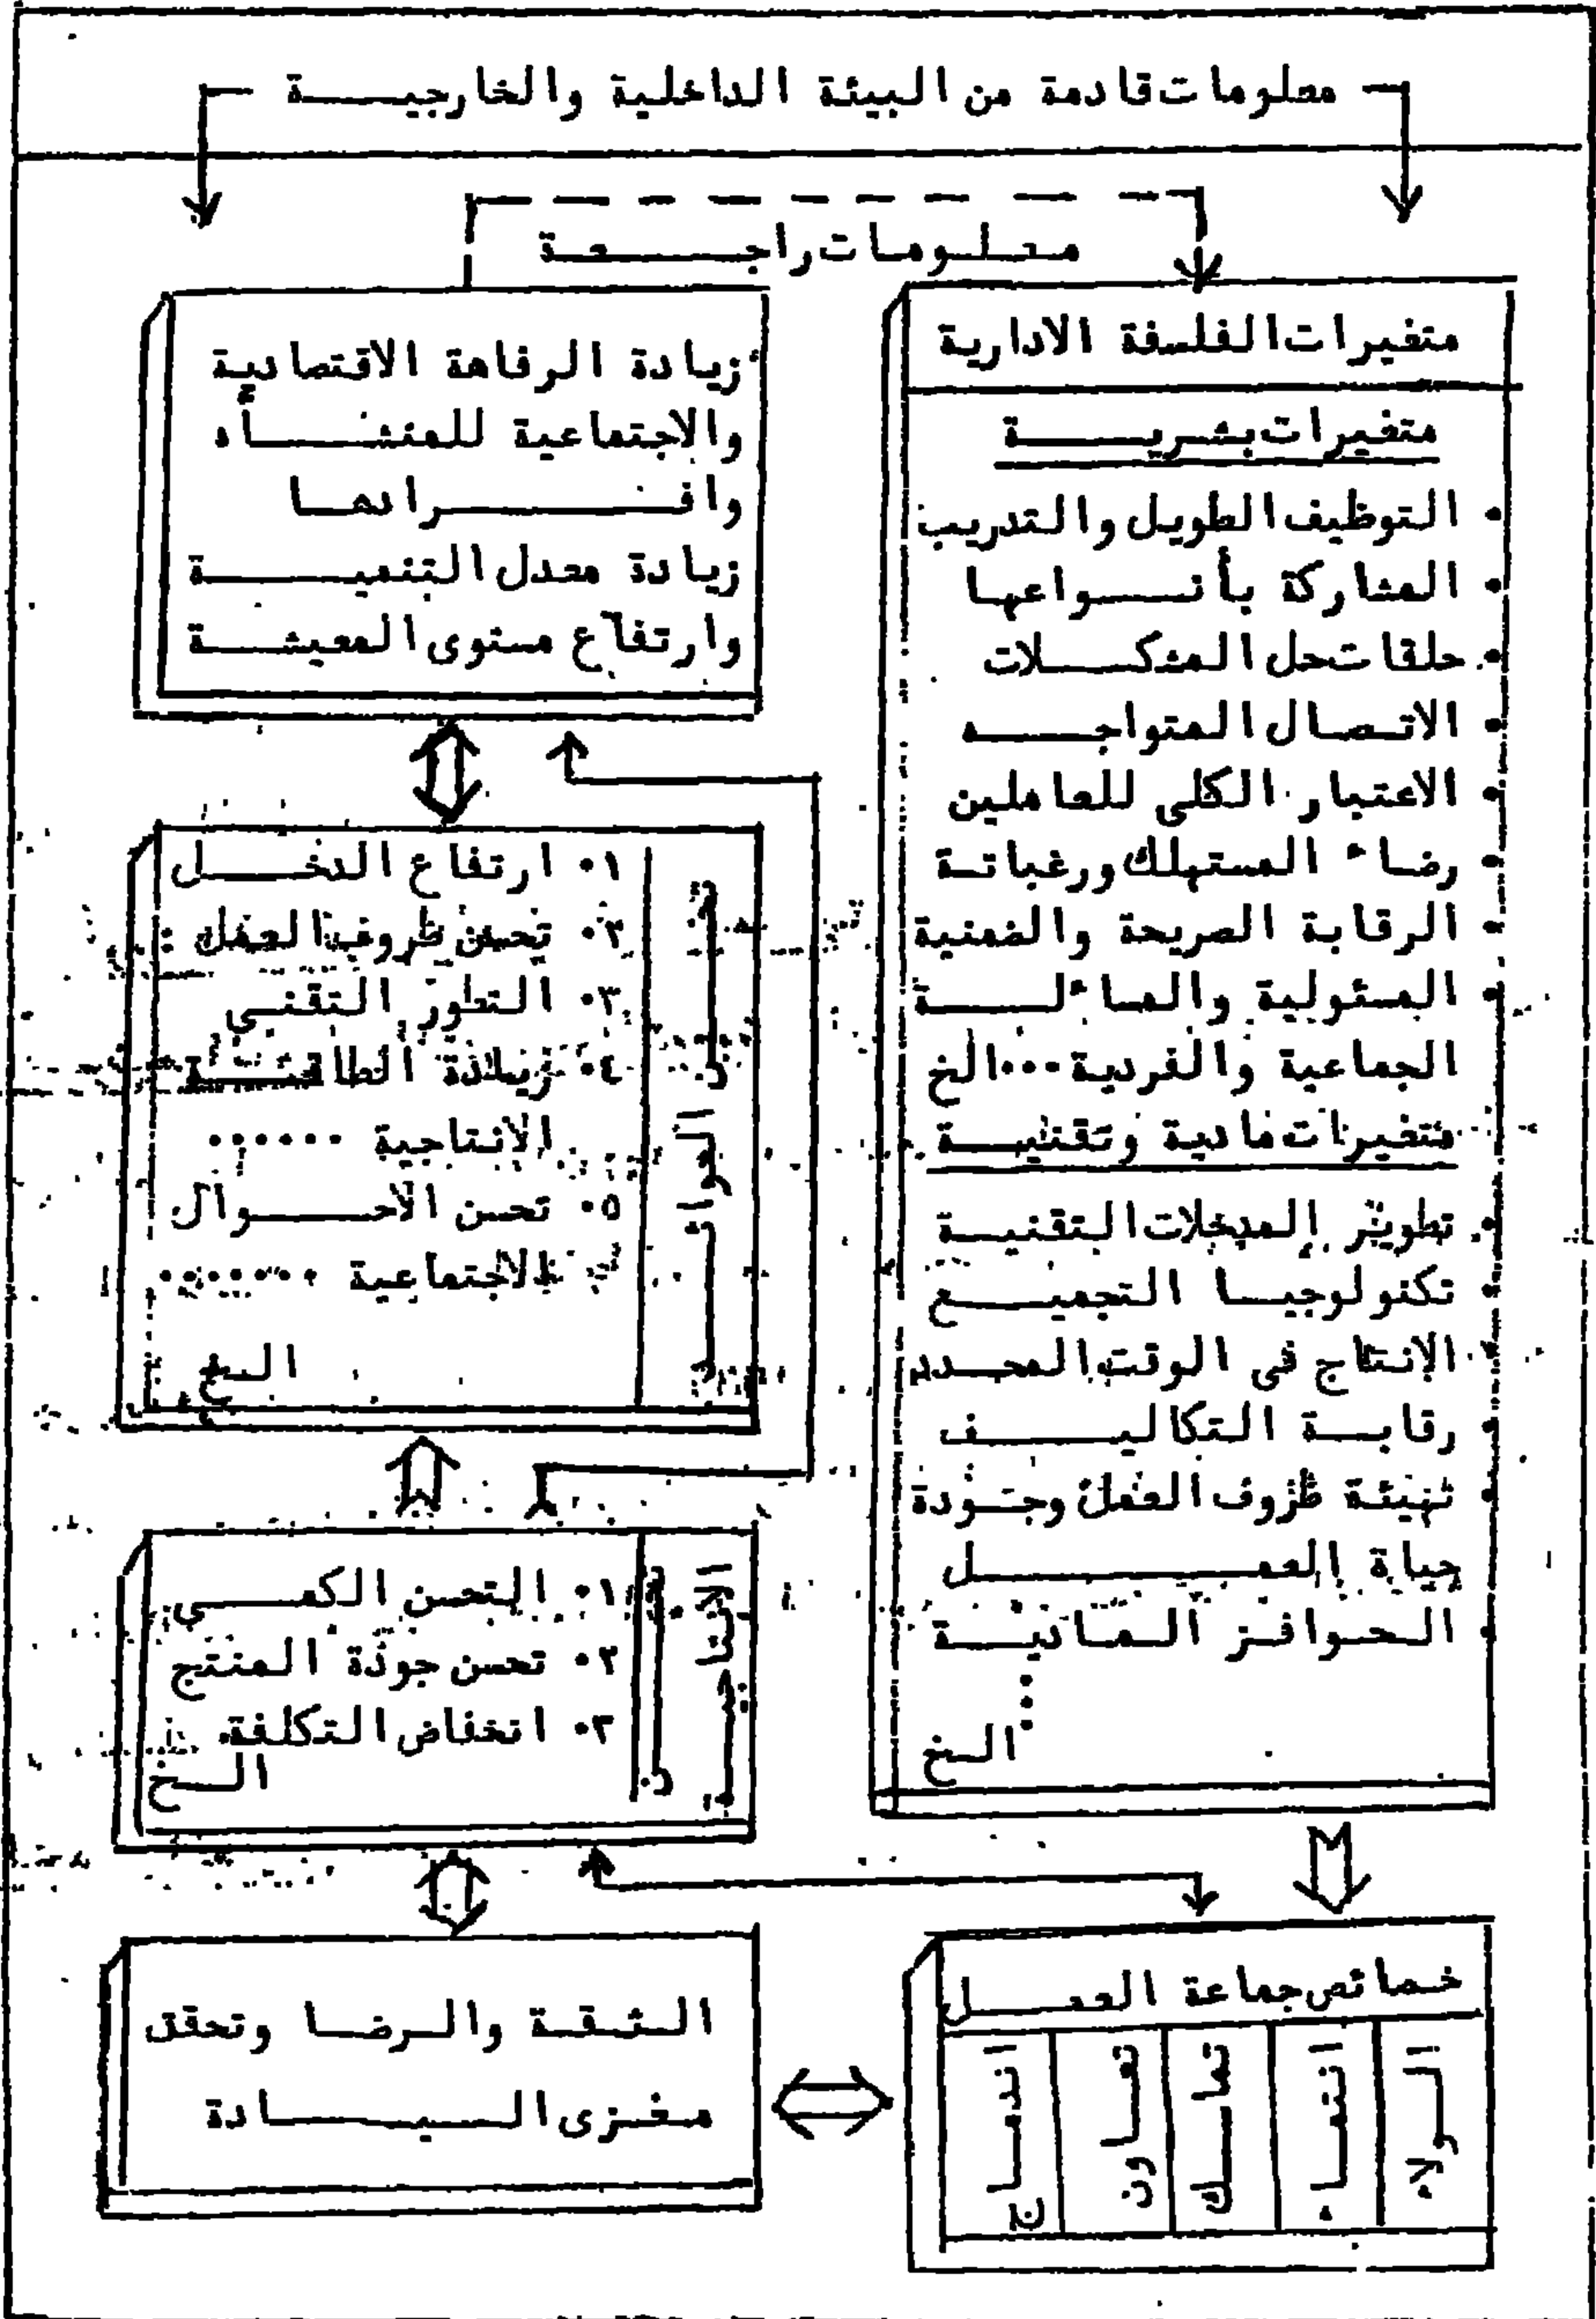 معلومات قادمة من البيئة الداخلية والخارجية
معلومات راجعة
متغيرات الفلسفة الادارية
متغيرات بشرية
• التوظيف الطويل والتدريب
• المشاركة بأنواعها
• حلقات حل المشكلات
• الاتصال المتواجه
• الاعتبار الكلى للعاملين
• رضاء المستهلك ورغباتة
• الرقابة الصريحة والضمنية
• المسئولية والمساءلة
الجماعية والفردية ... الخ
متغيرات مادية وتقنية
• تطوير المدخلات التقنية
• تكنولوجيا التجميع
• الانتاج فى الوقت المحدد
• رقابة التكاليف
• تهيئة ظروف العمل وجودة
حياة العمل
• الحوافز المادية
الخ
زيادة الرفاهة الاقتصادية
والاجتماعية للمنشأه
وافرادها
زيادة معدل التنمية
وارتفاع مستوى المعيشة
تحسن العوائد
١. ارتفاع الدخل
٢. تحسن ظروف العمل
٣. التطور التقنى
٤. زيادة الطاقة
الانتاجية ......
٥. تحسن الاحوال
الاجتماعية .......
الخ
الانتاجية
١. التحسن الكمى
٢. تحسن جودة المنتج
٣. انخفاض التكلفة
الخ
خصائص جماعة العمل
الولاء
انتماء
تماسك
تعاون
اندماج
الثقة والرضا وتحقق
مغزى السيادة